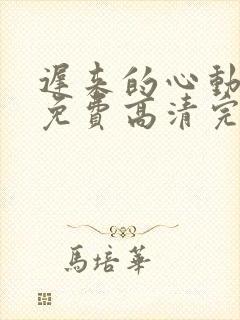 遲來的心動
免費高清完
馬培華